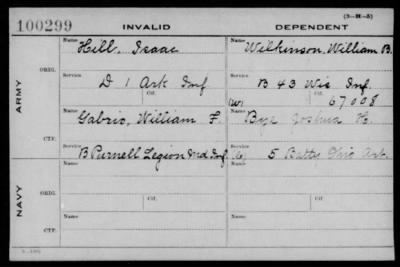 (3-H-5)
100299 INVALID DEPENDENT
Name Hill, Isaac Name Wilkinson, William B.
ARMY
ORIG.
Service D 1 Ark Inf Service B 43 Wis Inf.
Ctf. Ctf. 67008
(W)
CTF.
Name Gabrio, William F. Name Bye Joshua H.
Service B Purnell Legion Md Inf. 5 Batty Ohio Art.
NAVY
ORIG.
Name Name
Service Service
CTF.
Name Name